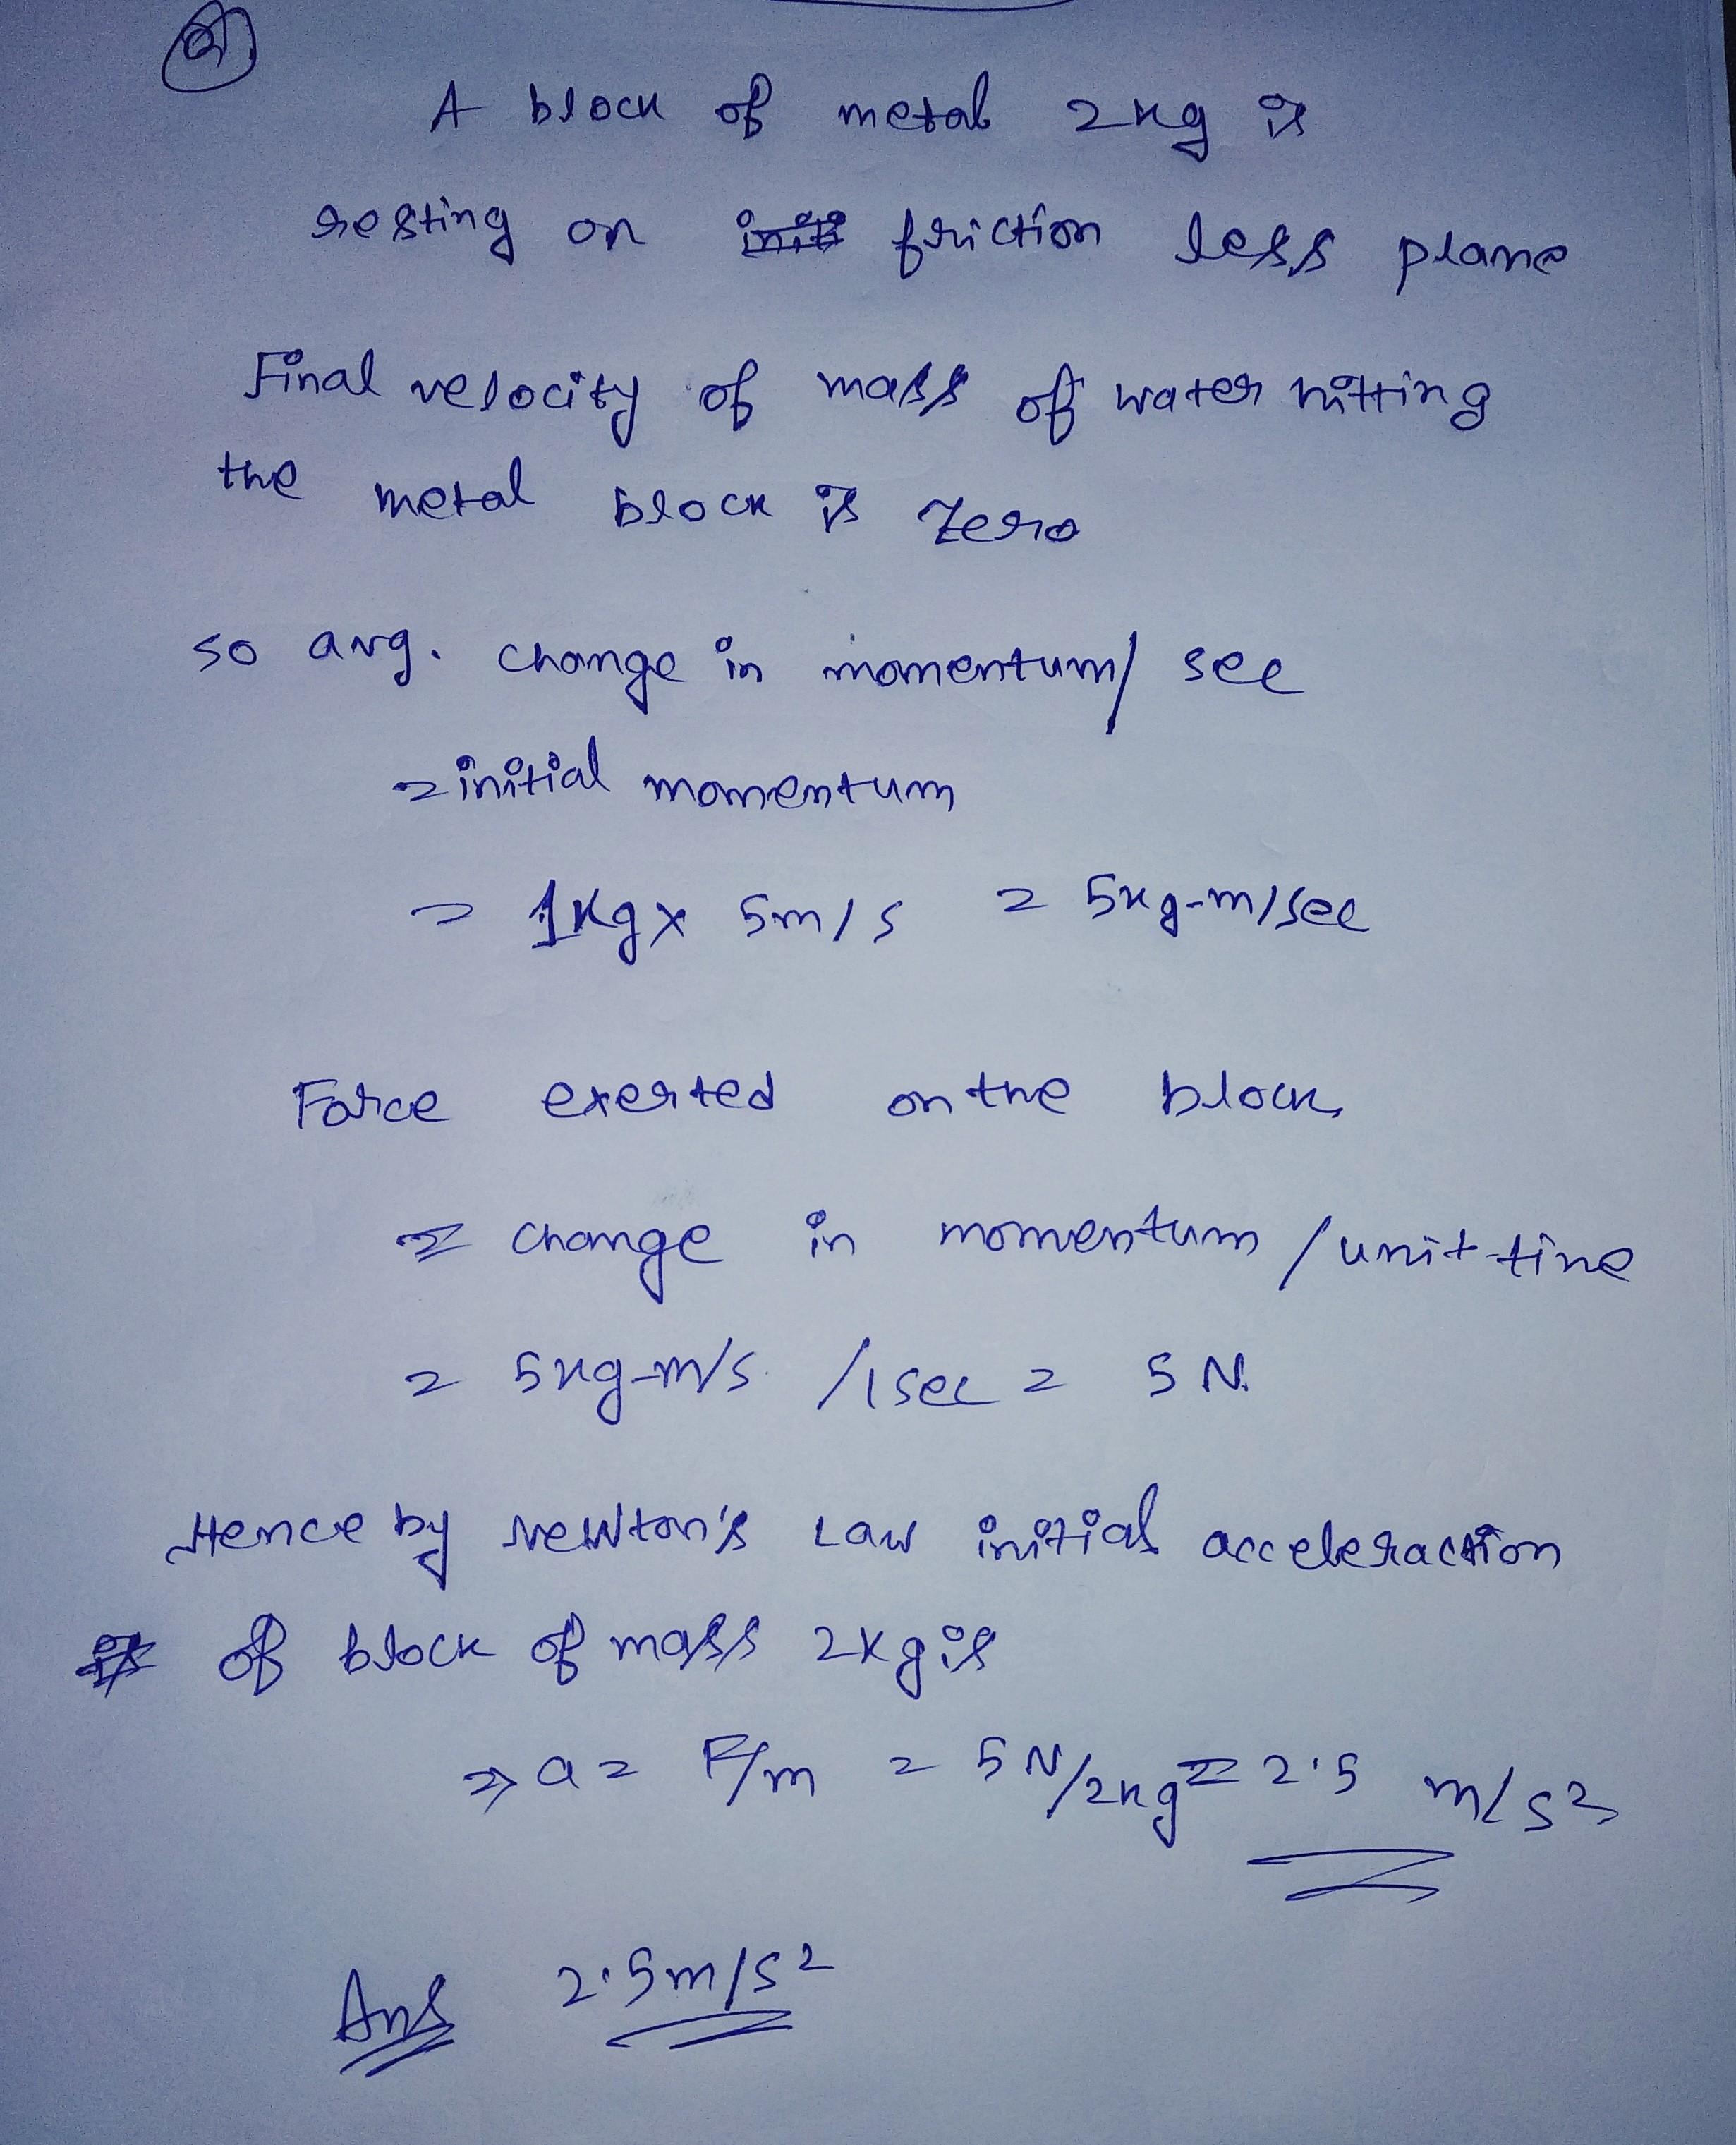 A block of metal 2kg is
resting on friction less plane
Final velocity of mass of water hitting
the metal block is zero
so avg. change in momentum/ sec
= initial momentum
= 1kg x 5m/s = 5kg-m/sec
Force exerted on the block
= change in momentum /unit time
= 5kg-m/s /1sec = 5 N.
Hence by Newton's Law initial acceleraction
of block of mass 2kg is
⇒ a = F/m = 5N/2kg = 2.5 m/s2
Ans 2.5m/s2